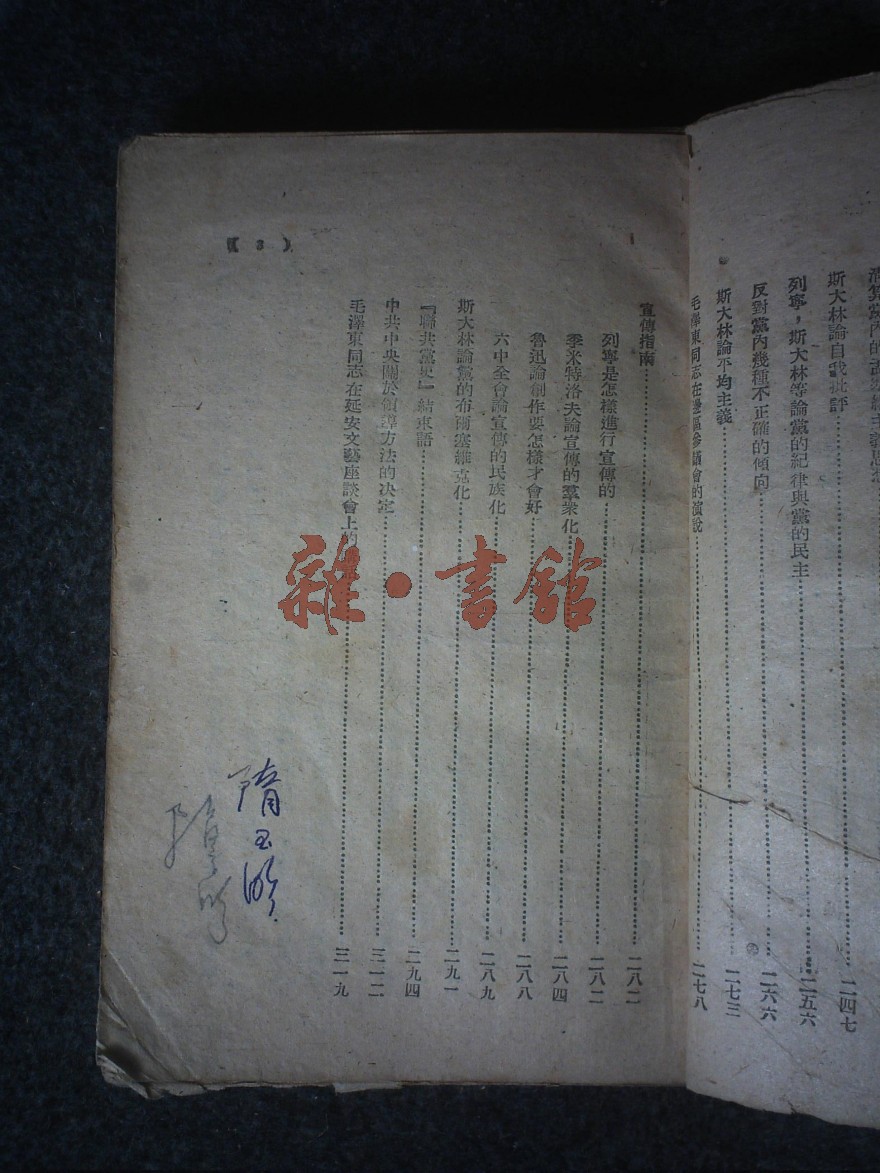 斯大林論自我批評 二四七
列寧，斯大林等論黨的紀律與黨的民主 二五六
反對黨內幾種不正確的傾向 二六六
斯大林論平均主義 二七三
毛澤東同志在邊區參議會的演說 二七八
宣傳指南 二八二
列寧是怎樣進行宣傳的 二八二
季米特洛夫論宣傳的羣衆化 二八四
魯迅論創作要怎樣才會好 二八八
六中全會論宣傳的民族化 二八九
斯大林論黨的布爾塞維克化 二九一
『聯共黨史』結束語 二九四
中共中央關於領導方法的決定 三一二
毛澤東同志在延安文藝座談會上的 三一九
( 3 )
雜·書館
隋玉